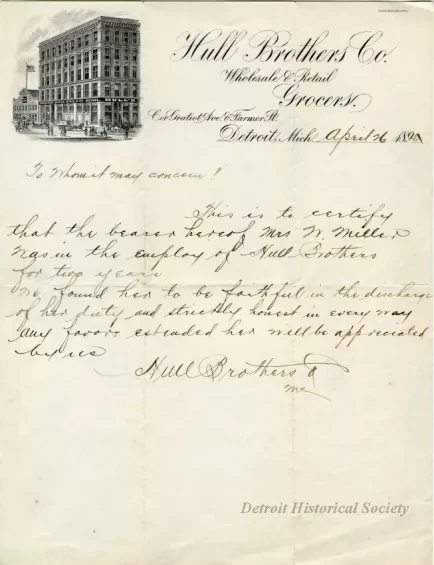 Hull Brothers Co.
Wholesale & Retail
Grocers.
Cor Gratiot Ave. & Farmer St.
Detroit, Mich April 26 189
To Whom it may concern!
This is to certify
that the bearer hereof Mrs W. Miller
was in the employ of Hull Brothers
for two years
we found her to be faithful in the discharge
of her duty and strickly honest in every way
any favors extended her will be appreciated
by us
Hull Brothers
Detroit Historical Society